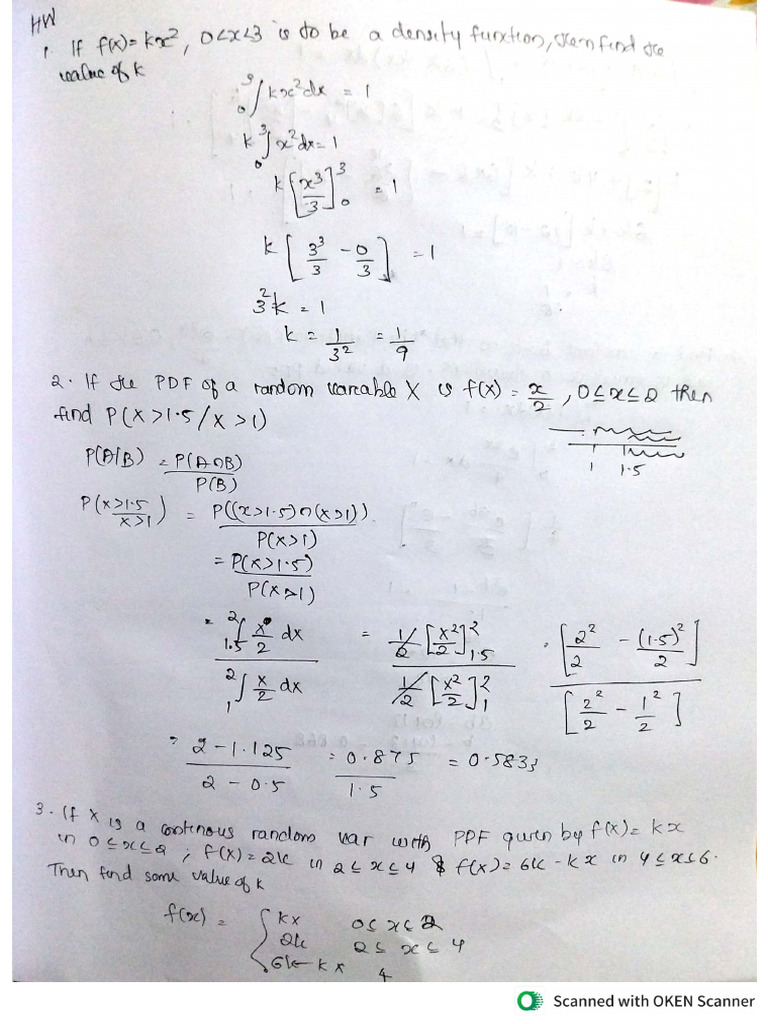 HW
1. If f(x) = kx², 0<x<3 is to be a density function, then find the
value of k
₀∫³ kx² dx = 1
k ₀∫³ x² dx = 1
k [x³/3]₀³ = 1
k [3³/3 - 0/3] = 1
3²k = 1
k = 1/3² = 1/9
2. If the PDF of a random variable X is f(x) = x/2, 0≤x≤2 then
find P(X>1.5/X>1)
1 1.5
P(A/B) = P(A∩B)/P(B)
P(x>1.5/x>1) = P((x>1.5)∩(x>1))/P(X>1)
= P(x>1.5)/P(x>1)
= ₁.₅∫² x/2 dx / ₁∫² x/2 dx = 1/2 [x²/2]₁.₅² / 1/2 [x²/2]₁² = [2²/2 - (1.5)²/2] / [2²/2 - 1²/2]
= 2-1.125/2-0.5 = 0.875/1.5 = 0.5833
3. If X is a continous random var with PDF given by f(x) = kx
in 0≤x≤2; f(x) = 2k in 2≤x≤4 & f(x) = 6k-kx in 4≤x≤6.
Then find some value of k
f(x) = { kx 0≤x≤2
2k 2≤x≤4
6k-kx 4
Scanned with OKEN Scanner